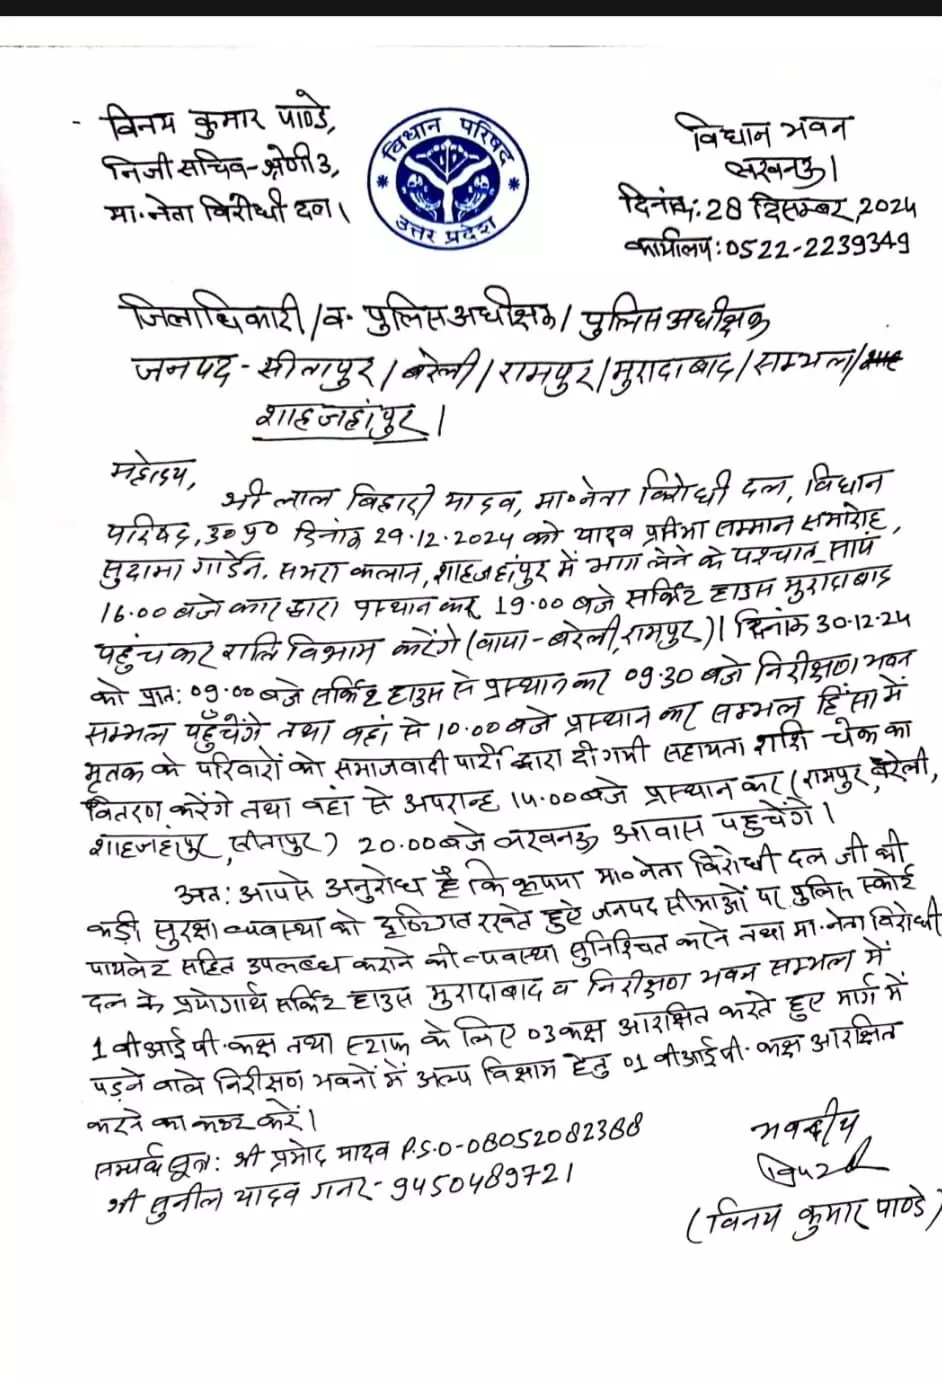 विनय कुमार पाण्डे,
निजी सचिव-श्रेणी 3,
मा. नेता विरोधी दल।
विधान परिषद
उत्तर प्रदेश
विधान भवन
लखनऊ।
दिनांक: 28 दिसम्बर, 2024
कार्यालय: 0522-2239349
जिलाधिकारी/व. पुलिस अधीक्षक/ पुलिस अधीक्षक
जनपद - सीतापुर/ बरेली/ रामपुर/ मुरादाबाद/ सम्भल/
शाहजहांपुर।
महोदय,
श्री लाल बिहारी यादव, मा० नेता विरोधी दल, विधान
परिषद, उ० प्र० दिनांक 29.12.2024 को यादव प्रतिभा सम्मान समारोह,
सुदामा गार्डेन, कलान, शाहजहांपुर में भाग लेने के पश्चात सायं
16.00 बजे कार द्वारा प्रस्थान कर 19.00 बजे सर्किट हाउस मुरादाबाद
पहुंच कर रात्रि विश्राम करेंगे (वाया - बरेली, रामपुर)। दिनांक 30.12.24
को प्रात: 09.00 बजे सर्किट हाउस से प्रस्थान कर 09.30 बजे निरीक्षण भवन
सम्भल पहुँचेंगे तथा वहां से 10.00 बजे प्रस्थान कर सम्भल हिंसा में
मृतक के परिवारों को समाजवादी पार्टी द्वारा दी गयी सहायता राशि चेक का
वितरण करेंगे तथा वहां से अपरान्ह 14.00 बजे प्रस्थान कर (रामपुर, बरेली,
शाहजहांपुर, सीतापुर) 20.00 बजे लखनऊ आवास पहुचेंगे।
अत: आपसे अनुरोध है कि कृपया मा० नेता विरोधी दल जी की
कड़ी सुरक्षा व्यवस्था को दृष्टिगत रखते हुए जनपद सीमाओं पर पुलिस स्कोर्ट
पायलेट सहित उपलब्ध कराने की व्यवस्था सुनिश्चित करने तथा मा. नेता विरोधी
दल के प्रयोगार्थ सर्किट हाउस मुरादाबाद व निरीक्षण भवन सम्भल में
1 वीआईपी. कक्ष तथा स्टाफ के लिए 03 कक्ष आरक्षित करते हुए मार्ग में
पड़ने वाले निरीक्षण भवनों में अल्प विश्राम हेतु 01 वीआईपी. कक्ष आरक्षित
करने का कष्ट करें।
सम्पर्क सूत्र: श्री प्रमोद यादव P.S.O-08052082388
श्री सुनील यादव गनर- 9450489721
भवदीय
(विनय कुमार पाण्डे)